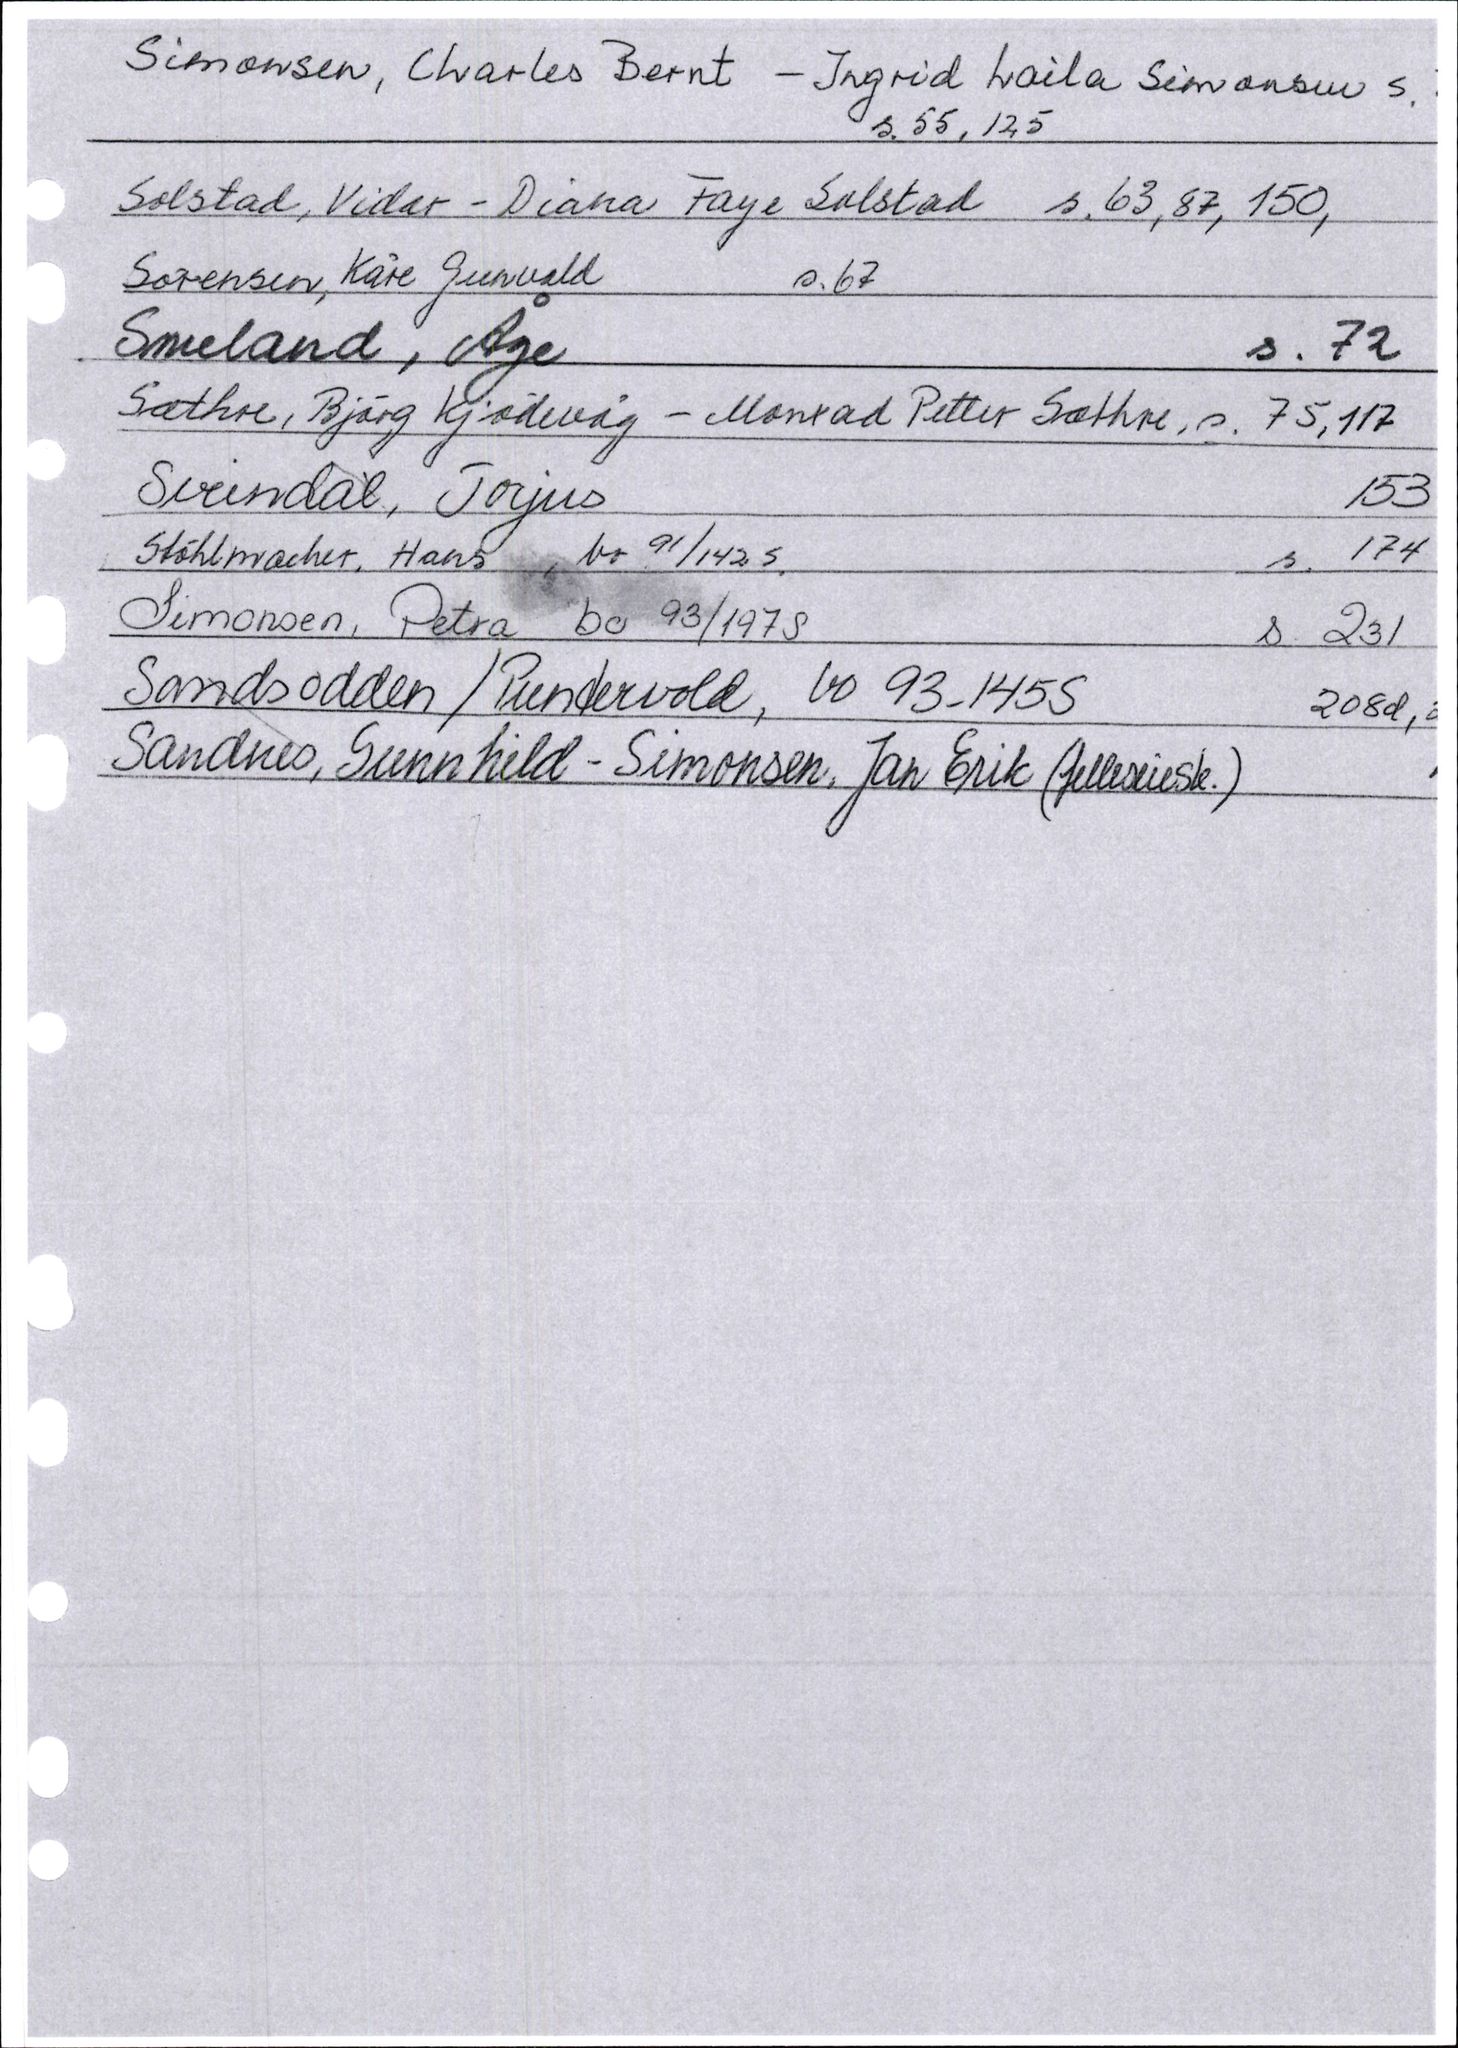 Simonsen, Charles Bernt – Ingrid Laila Simonsen s.
s. 55, 125
Solstad, Vidar - Diana Faye Solstad s. 63, 87, 150,
Sørensen, Kåre Gunvald s. 67
Smeland, Åge s. 72
Sæthre, Bjørg Kjødevåg – Monrad Petter Sæthre, s. 75, 117
Sirindal, Torjus 153
Stöhlmacher, Hans, bo 91/142 S. s. 174
Simonsen, Petra bo 93/197 S s. 231
Sandsodden / Pundervold, bo 93-145S 208d,
Sandnes, Gunnhild - Simonsen, Jan Erik (felleseiesk.)